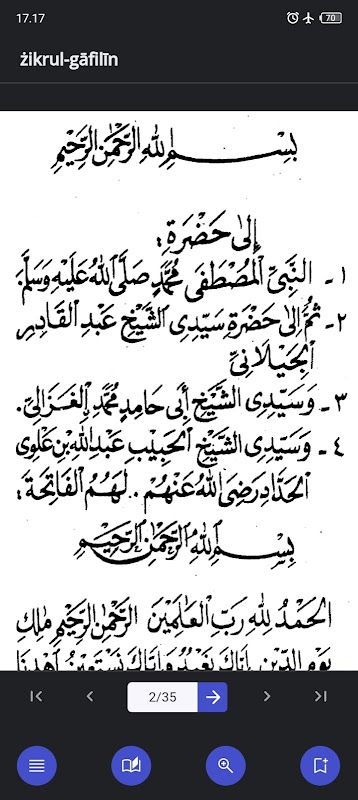 17.17
70
żikrul-gāfilīn
بِسْمِ اللهِ الرَّحْمٰنِ الرَّحِيْمِ
إِلٰى حَضْرَةِ :
١ - النَّبِيِّ الْمُصْطَفَى مُحَمَّدٍ صَلَّى اللهُ عَلَيْهِ وَسَلَّمَ.
٢ - ثُمَّ إِلٰى حَضْرَةِ سَيِّدِى الشَّيْخِ عَبْدِ الْقَادِرِ
الْجَيْلَانِيِّ
٣ - وَسَيِّدِى الشَّيْخِ أَبِى حَامِدٍ مُحَمَّدِ الْغَزَالِيِّ.
٤ - وَسَيِّدِى الشَّيْخِ الْحَبِيْبِ عَبْدِ اللهِ بْنِ عَلْوِى
الْحَدَّادِ رَضِيَ اللهُ عَنْهُمْ .. لَهُمُ الْفَاتِحَةُ :
بِسْمِ اللهِ الرَّحْمٰنِ الرَّحِيْمِ
الْحَمْدُ لِلّٰهِ رَبِّ الْعَالَمِيْنَ الرَّحْمٰنِ الرَّحِيْمِ مٰلِكِ
يَوْمِ الدِّيْنِ إِيَّاكَ نَعْبُدُ وَإِيَّاكَ نَسْتَعِيْنُ اهْدِنَا
2/35